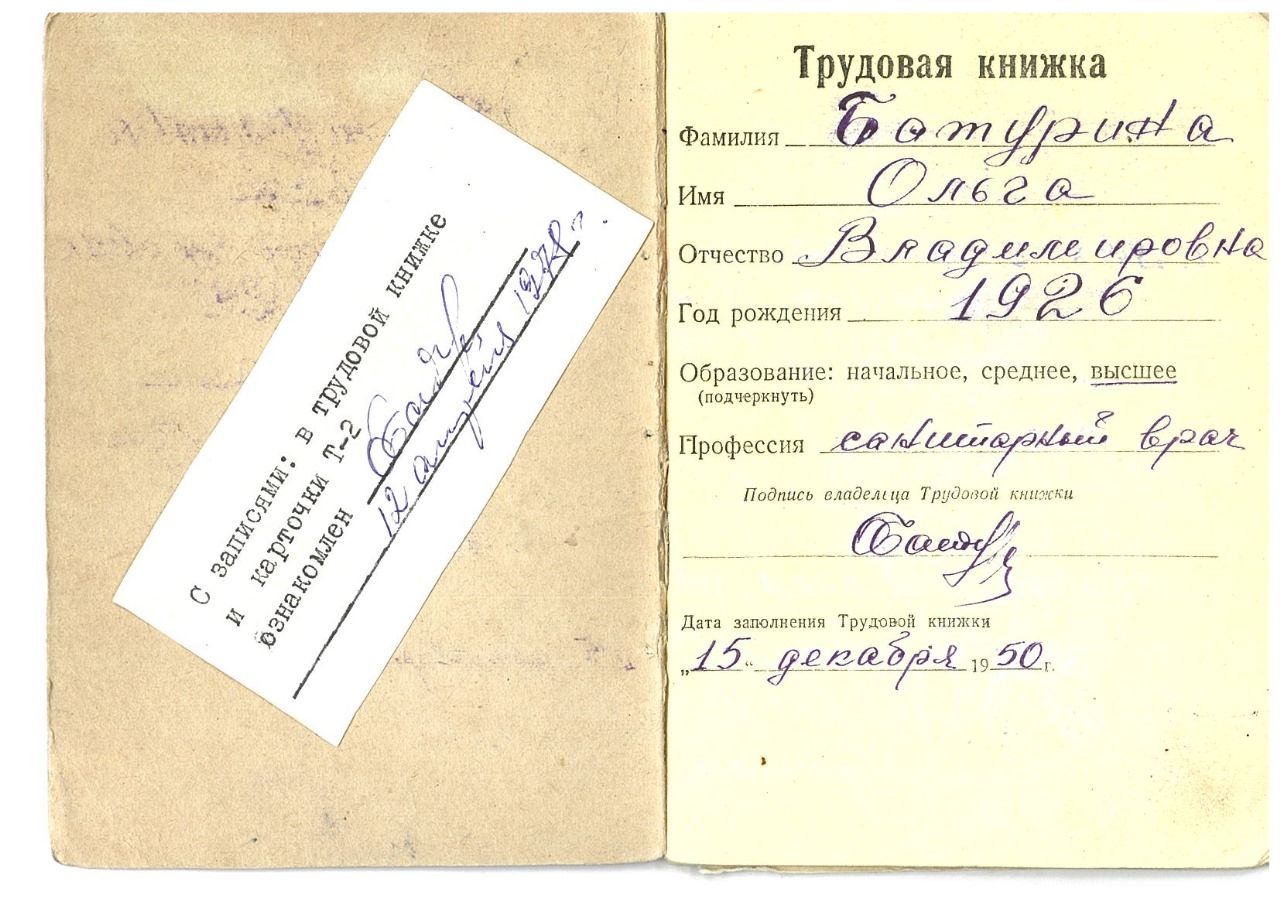 С записями: в трудовой книжке
и карточки Т-2
ознакомлен
12 1978г.
Трудовая книжка
Фамилия Батурина
Имя Ольга
Отчество Владимировна
Год рождения 1926
Образование: начальное, среднее, высшее
(подчеркнуть)
Профессия санитарный врач
Подпись владельца Трудовой книжки
Дата заполнения Трудовой книжки
„15“ декабря 1950 г.